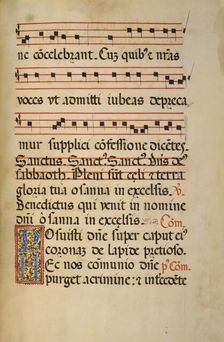 nc cōcelebrant. Cuz quib⁹ ⁊ nr̄as
voces vt admitti iubeas depreca
mur supplici cōfessione dicētes
Sanctus. Sanct⁹. Sanct⁹. Dn̄s de⁹
sabbaoth. Pleni sūt celi ⁊ terra
gloria tua osanna in excelsis. ℟.
Benedictus qui venit in nomine
dn̄i osanna in excelsis. Cōm.
Posuisti dn̄e super caput ei⁹
coronaz de lapide pretioso.
Ec nos comunio dn̄e p⁹Com.
purget a crimine: ⁊ intercedēte